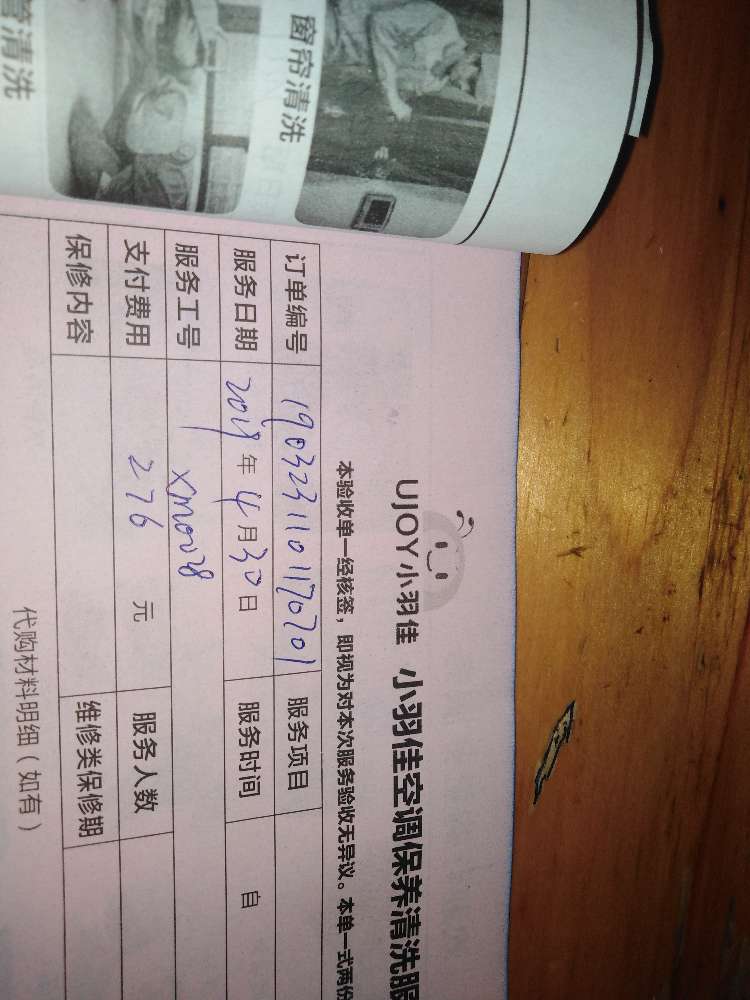 窗帘清洗
管清洗
UJOY小羽佳 小羽佳空调保养清洗服
本验收单一经核签，即视为对本次服务验收无异议。本单一式两份
订单编号 1903231101170201 服务项目
服务日期 2019年4月30日 服务时间 自
服务工号 xm0028
支付费用 276 元 服务人数
保修内容 维修类保修期
代购材料明细（如有）